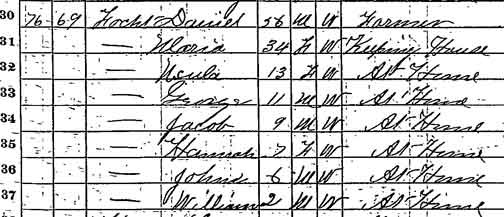 30 76 69 Focht Daniel 56 M W Farmer
31 — Maria 34 F W Keeping House
32 — 13 F W At Home
33 — George 11 M W At Home
34 — Jacob 9 M W At Home
35 — Hannah 7 F W At Home
36 — John 6 M W At Home
37 — William 2 M W At Home